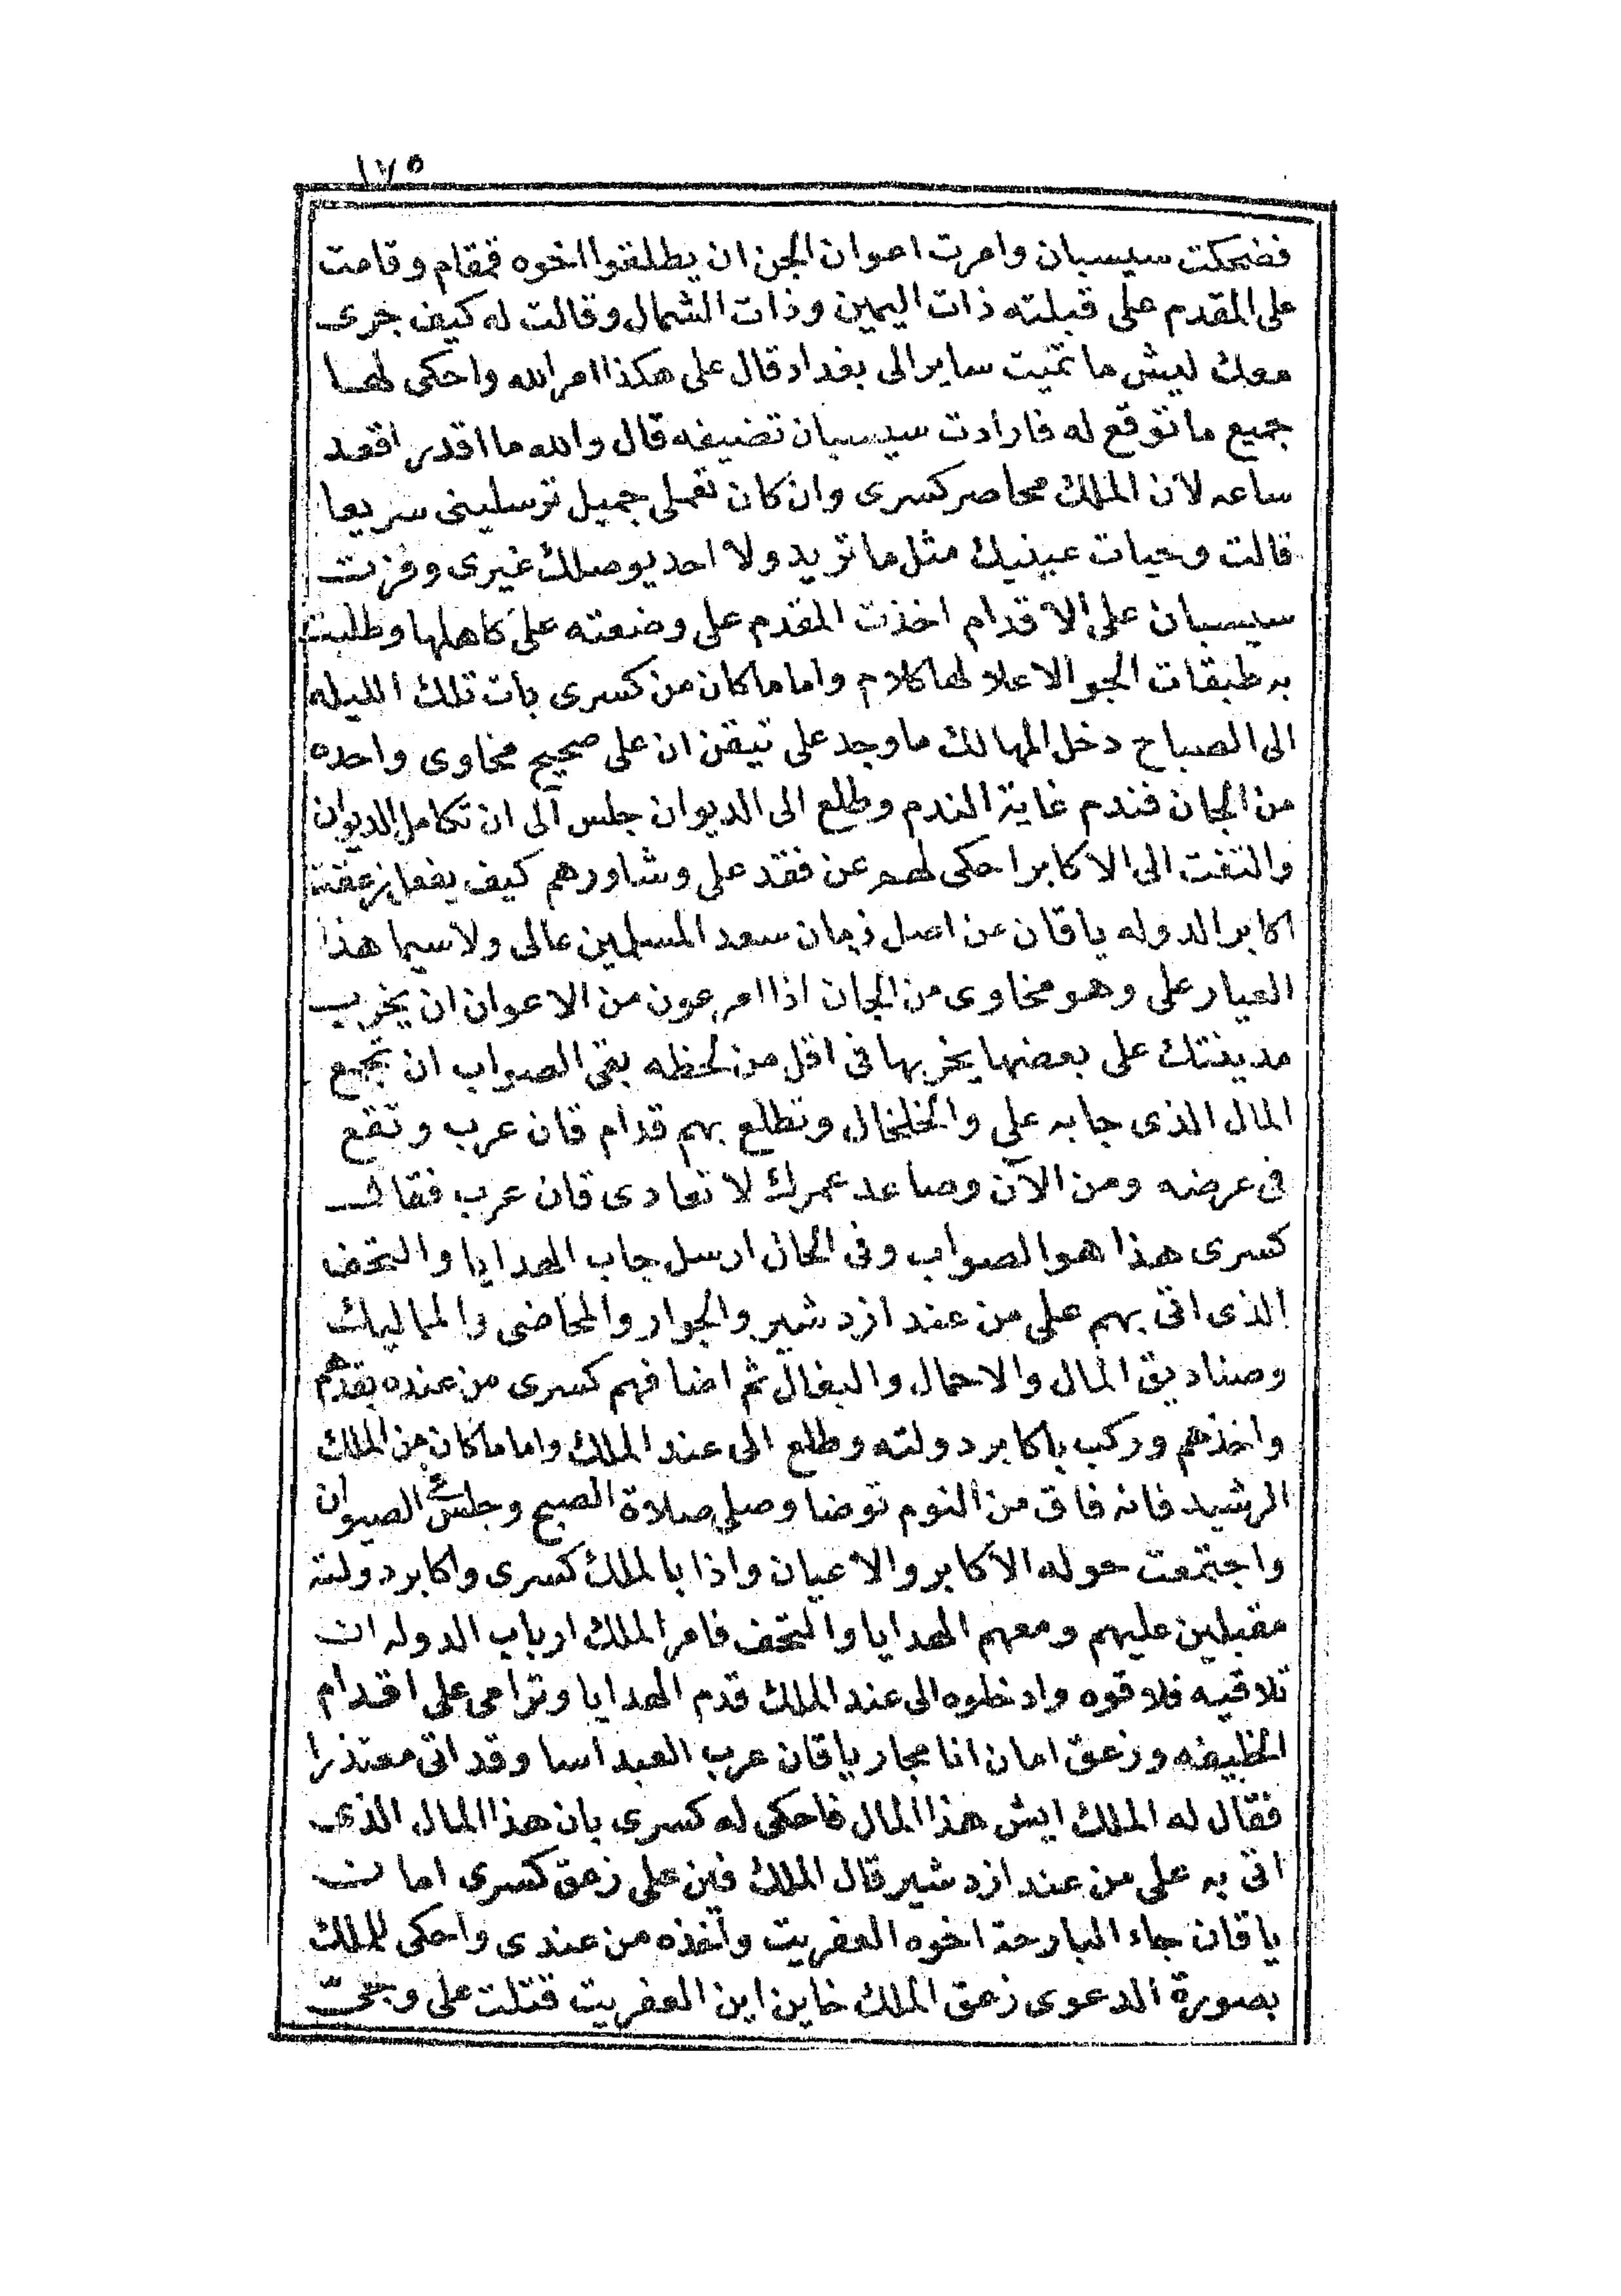 ١٧٥
فضحكت سيسبان وامرت اعوان الجن ان يطلقوا اخوه قمقام وقامت
على المقدم على قبلته ذات اليمين وذات الشمال وقالت له كيف جرى
معك ليش ما تميت ساير الى بغداد قال على هكذا امر الله واحكى لها
جميع ما توقع له فارادت سيسبان تضيفه قال والله ما اقدر اقعد
ساعه لان الملك محاصر كسرى وان كان تعملى جميل توسلينى سريعا
قالت وحيات عينيك مثل ما تريد ولا احد يوصلك غيرى وفزت
سيسبان على الاقدام اخذت المقدم على وضعته على كاهلها وطلبت
به طبقات الجو الاعلا لها كلام واما ما كان من كسرى بات تلك الليله
الى الصباح دخل المهالك ما وجد على تيقن ان على صحيح مخاوى واحده
من الجان فندم غاية الندم وطلع الى الديوان جلس الى ان تكامل الديوان
والتفت الى الاكابر احكى لهم عن فقد على وشاورهم كيف يفعل زعقة
اكابر الدوله ياقان من اصل زمان سعد المسلمين عالى ولا سيما هذا
العيار على وهو مخاوى من الجان اذا امر عون من الاعوان ان يخرب
مدينتك على بعضها يخربها فى اقل من لحظه بقى الصواب ان تجمع
المال الذى جابه على والخلخال وتطلع بهم قدام قان عرب وتقع
فى عرضه ومن الآن وصاعد عمرك لا تعادى قان عرب فقال
كسرى هذا هو الصواب وفى الحال ارسل جاب الهدايا والتحف
الذى اتى بهم على من عند ازدشير والجوار والمحاضى والمماليك
وصناديق المال والاحمال والبغال ثم اضافهم كسرى من عنده بقدهم
واخذهم وركب باكابر دولته وطلع الى عند الملك واما ما كان من الملك
الرشيد فانه فاق من النوم توضا وصلى صلاة الصبح وجلس فى الصيوان
واجتمعت حوله الاكابر والاعيان واذا بالملك كسرى واكابر دولته
مقبلين عليهم ومعهم الهدايا والتحف فامر الملك ارباب الدوله ان
تلاقيه فلاقوه وادخلوه الى عند الملك قدم الهدايا وترامى على اقدام
الخليفه وزعق امان انا مجار ياقان عرب العبد اسا وقد اتى معتذرا
فقال له الملك ايش هذا المال فاحكى له كسرى بان هذا المال الذى
اتى به على من عند ازدشير قال الملك فين على زعق كسرى امان
ياقان جاء البارحة اخوه العفريت واخذه من عندى واحكى للملك
بصورة الدعوى زعق الملك خاين اين العفريت قتلت على وجيت